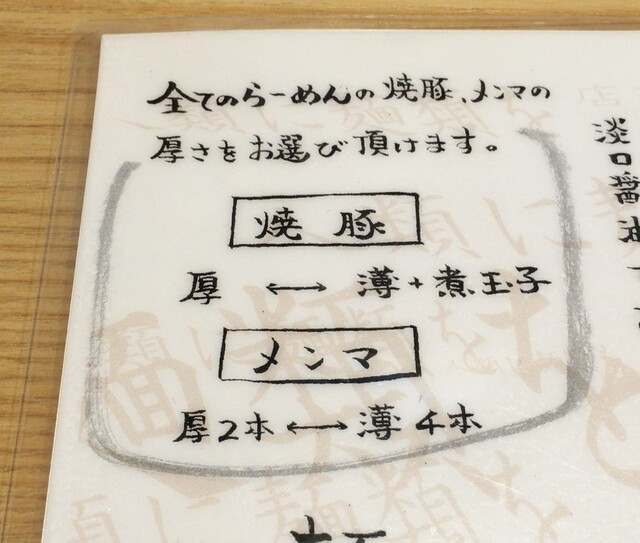 全てのらーめんの焼豚、メンマの
厚さをお選び頂けます。
焼豚
厚 ↔ 薄+煮玉子
メンマ
厚2本 ↔ 薄4本
淡口醤油